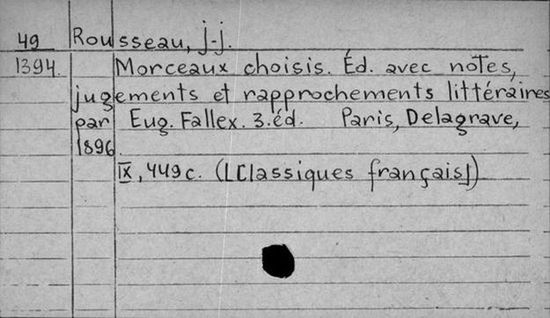 49 Rousseau, j-j.
1394. Morceaux choisis. Éd. avec notes,
jugements et rapprochements littéraires
par Eug. Fallex. 3.éd. Paris, Delagrave,
1896.
IX, 449 c. ([Classiques français])